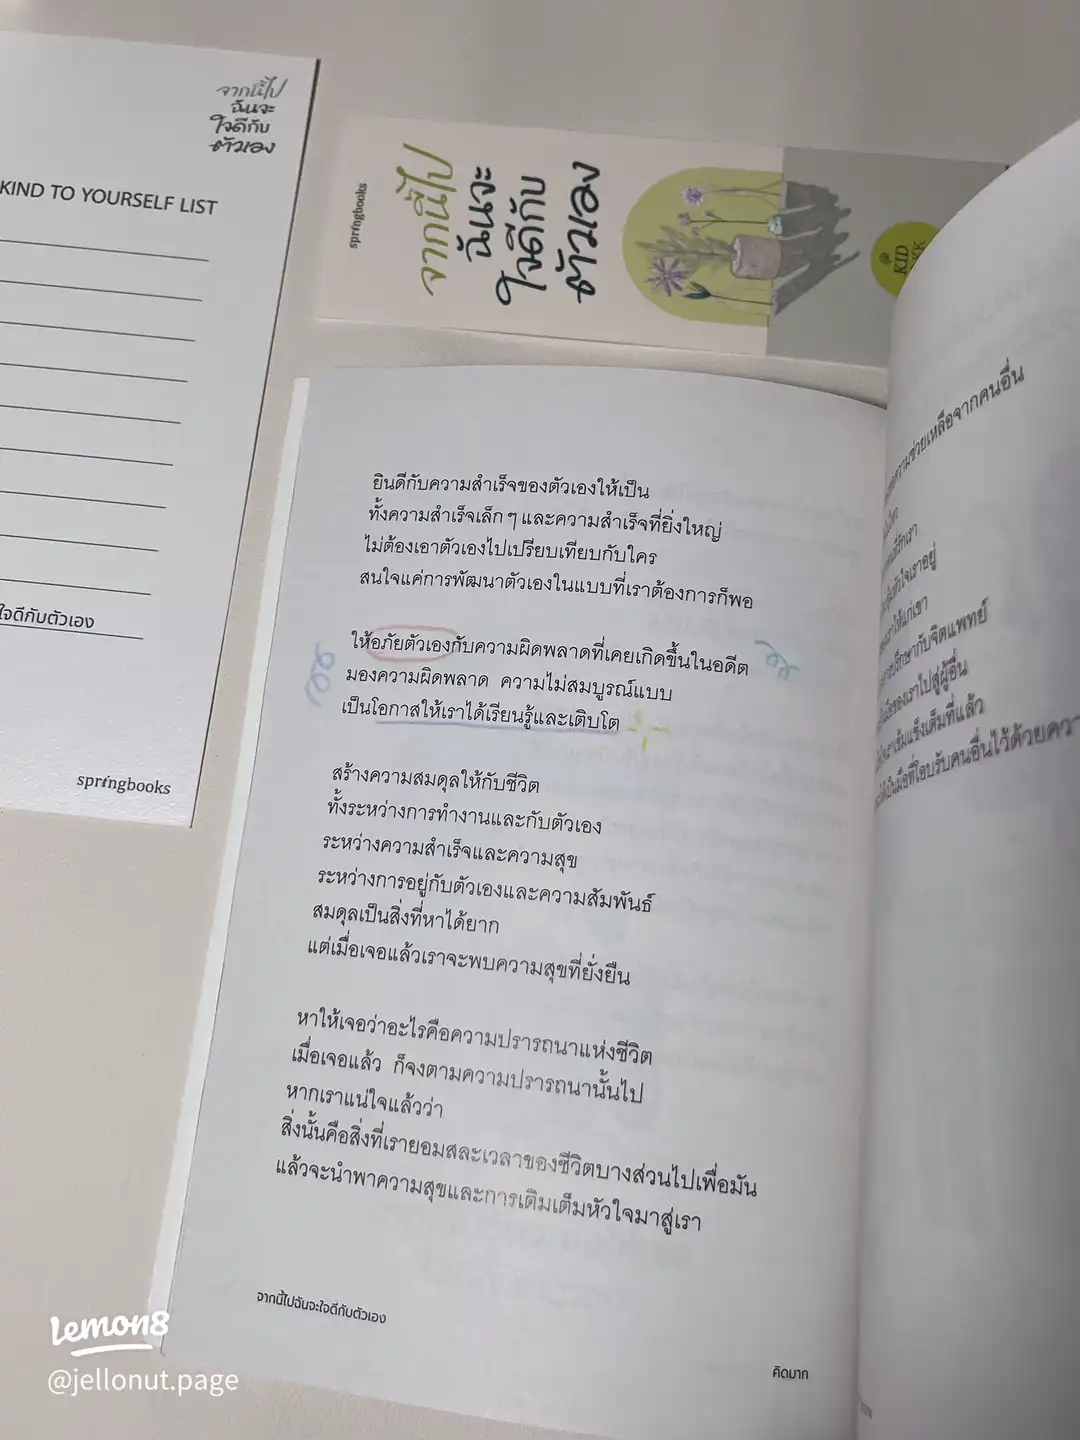 จากนี้ไป
ฉันจะ
ใจดีกับ
ตัวเอง
KIND TO YOURSELF LIST
ใจดีกับตัวเอง
springbooks
springbooks
จากนี้ไป
ฉันจะ
ใจดีกับ
ตัวเอง
KID
ยินดีกับความสำเร็จของตัวเองให้เป็น
ทั้งความสำเร็จเล็ก ๆ และความสำเร็จที่ยิ่งใหญ่
ไม่ต้องเอาตัวเองไปเปรียบเทียบกับใคร
สนใจแค่การพัฒนาตัวเองในแบบที่เราต้องการก็พอ
ให้อภัยตัวเองกับความผิดพลาดที่เคยเกิดขึ้นในอดีต
มองความผิดพลาด ความไม่สมบูรณ์แบบ
เป็นโอกาสให้เราได้เรียนรู้และเติบโต
สร้างความสมดุลให้กับชีวิต
ทั้งระหว่างการทำงานและกับตัวเอง
ระหว่างความสำเร็จและความสุข
ระหว่างการอยู่กับตัวเองและความสัมพันธ์
สมดุลเป็นสิ่งที่หาได้ยาก
แต่เมื่อเจอแล้วเราจะพบความสุขที่ยั่งยืน
หาให้เจอว่าอะไรคือความปรารถนาแห่งชีวิต
เมื่อเจอแล้ว ก็จงตามความปรารถนานั้นไป
หากเราแน่ใจแล้วว่า
สิ่งนั้นคือสิ่งที่เรายอมสละเวลาของชีวิตบางส่วนไปเพื่อมัน
แล้วจะนำพาความสุขและการเติมเต็มหัวใจมาสู่เรา
จากนี้ไปฉันจะใจดีกับตัวเอง
คิดมาก
ความช่วยเหลือจากคนอื่น
ที่รักเรา
หัวใจเราอยู่
ให้แก่เขา
ปรึกษากับจิตแพทย์
ของเราไปสู่ผู้อื่น
เข้มแข็งเต็มที่แล้ว
เป็นมือที่โอบรับคนอื่นไว้ด้วย
Lemon8
@jellonut.page